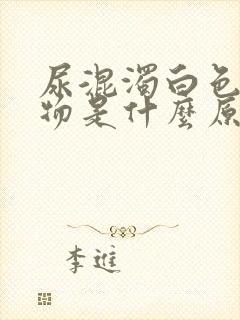 尿混濁白色
物是什麼原
李進